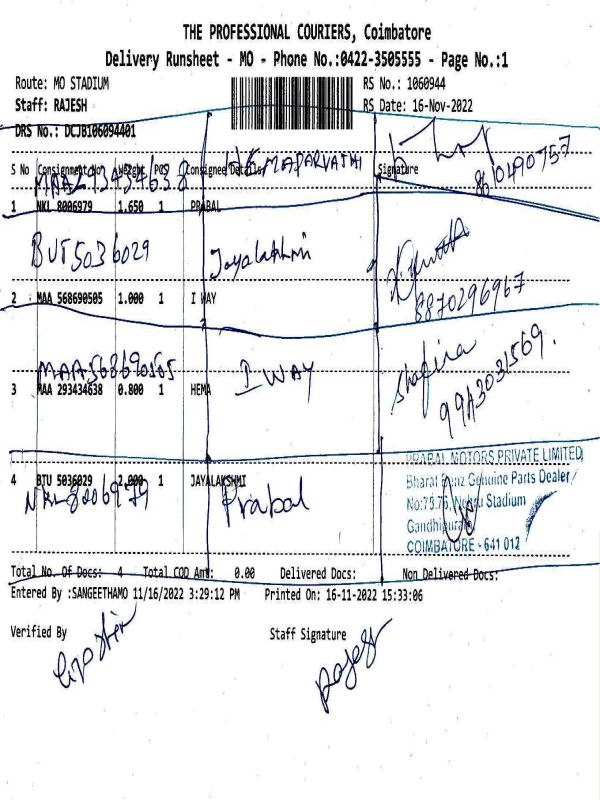 THE PROFESSIONAL COURIERS, Coimbatore
Delivery Runsheet - MO - Phone No.:0422-3505555 - Page No.:1
Route: MO STADIUM RS No.: 1060944
Staff: RAJESH RS Date: 16-Nov-2022
DRS No.: DCJB106094401
S No Consignment No Weight PCS Consignee Details Signature
MAA293434638 HEMAPARVATHI 8610490757
1 NKL 8006979 1.650 1 PRABAL
BUT5036029 Jayalakhmi
8870296967
2 MAA 568690505 1.000 1 I WAY
MAA568690505 I WAY Shafira
3 MAA 293434638 0.800 1 HEMA
PRABAL MOTORS PRIVATE LIMITED
4 BTU 5036029 2.000 1 JAYALAKSHMI
Bharat Benz Genuine Parts Dealer
NKL8006979 Prabal
No:75,76, Nehru Stadium
Gandhipuram
COIMBATORE - 641 012
Total No. Of Docs: 4 Total COD Amt: 0.00 Delivered Docs: Non Delivered Docs:
Entered By :SANGEETHAMO 11/16/2022 3:29:12 PM Printed On: 16-11-2022 15:33:06
Verified By Staff Signature
Rajesh